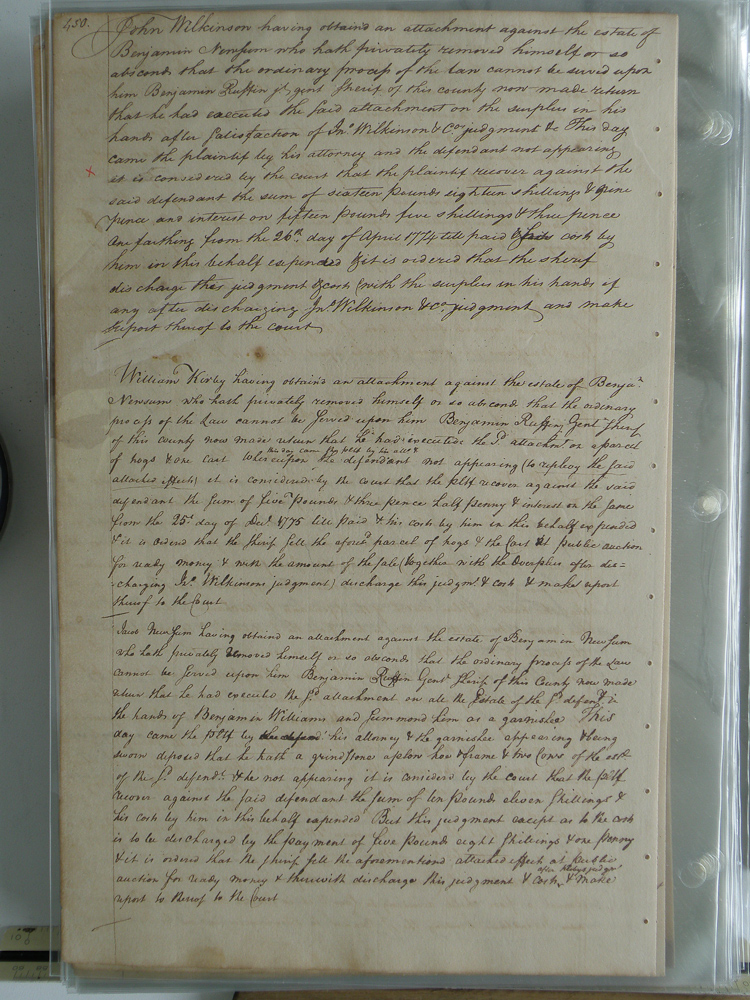 450.
John Wilkinson having obtaind an attachment against the estate of
Benjamin Newsum who hath privately removed himself or so
absconds that the ordinary process of the Law cannot be served upon
him Benjamin Ruffin jr. gent Sherif of this county now made return
that he had executed the said attachment on the surplus in his
hands after satisfaction of Jno. Wilkinson & Co. judgment &c This day
came the plaintif by his attorney and the defendant not appearing
it is considered by the court that the plaintif recover against the
said defendant the sum of sixteen pounds eighteen shillings & nine
pence and interest on fifteen pounds five shillings & three pence
one farthing from the 26th. day of April 1774 till paid & his costs by
him in this behalf expended & it is ordered that the sherif
discharge this judgment & costs (with the surplus in his hands if
any after discharging Jno. Wilkinson & co. judgment) and make
report thereof to the court
William Kirby having obtaind an attachment against the estate of Benja.
Newsum who hath privately removed himself or so absconds that the ordinary
process of the Law cannot be served upon him Benjamin Ruffin Gent Sherif
of this county now made return that he had executed the sd. attachmt. on a parcel
this day came the pltf by his atto. &
of hogs & one cart whereupon the defendant not appearing (to replevy the said
attached effects) it is considered by the court that the pltf recover against the said
defendant the sum of five pounds & three pence half penny & interest on the same
from the 25th. day of Decr. 1775 till paid & his costs by him in this behalf expended
& it is orderd that the sherif sell the aforesd. parcel of hogs & the cart at public auction
for ready money & with the amount of the sale (together with the overplus after dis=
=charging Jno. Wilkinsons judgment) discharge this judgmt. & costs & make report
thereof to the Court
Jacob Newsum having obtaind an attachment against the estate of Benjamin Newsum
who hath privately removed himself or so absconds that the ordinary process of the Law
cannot be served upon him Benjamin Ruffin Gent Sherif of this County now made
return that he had executed the sd. attachment on all the Estate of the sd. defendt. in
the hands of Benjamin Williams and summond him as a garnishee This
day came the pltf by his attorney & the garnishee appearing & being
sworn deposed that he hath a grindstone a plow hoe & frame & two Cows of the estate
of the sd. defendt. & he not appearing it is considerd by the court that the pltf
recover against the said defendant the sum of ten pounds eleven shillings &
his costs by him in this behalf expended But this judgment except as to the costs
is to be discharged by the payment of five pounds eight shillings & one penny
& it is ordered that the sherif sell the aforementiond attached effects at public
after Kirbys judgmt.
auction for ready money & therewith discharge this judgment & costs & make
report to thereof to the Court